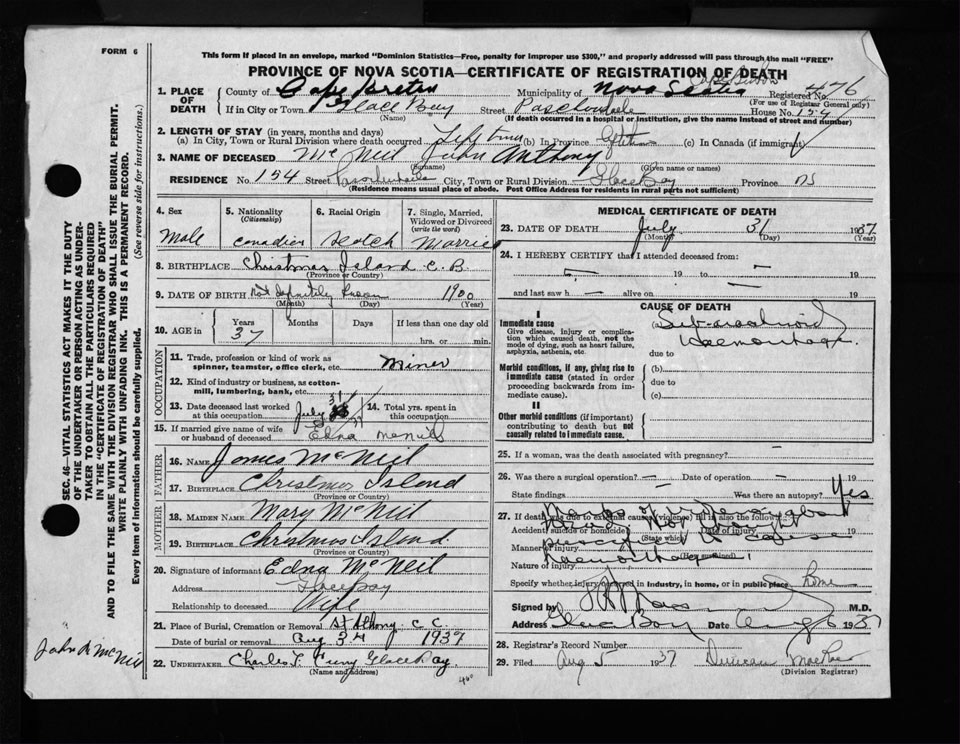 FORM 6
This form if placed in an envelope, marked "Dominion Statistics—Free, penalty for improper use $300," and properly addressed will pass through the mail "FREE"
PROVINCE OF NOVA SCOTIA—CERTIFICATE OF REGISTRATION OF DEATH
1. PLACE OF DEATH
County of Cape Breton Municipality of Nova Scotia Cape Breton Registered No. 476
(For use of Registrar General only)
If in City or Town Glace Bay Street House No. 154
(Name) (If death occurred in a hospital or institution, give the name instead of street and number)
2. LENGTH OF STAY (in years, months and days)
(a) In City, Town or Rural Division where death occurred Life time (b) In Province (c) In Canada (if immigrant)
3. NAME OF DECEASED McNeil John Anthony
(Surname) (Given name or names)
RESIDENCE No. 154 Street City, Town or Rural Division Glace Bay Province NS
(Residence means usual place of abode. Post Office Address for residents in rural parts not sufficient)
4. Sex Male
5. Nationality (Citizenship) Canadian
6. Racial Origin Scotch
7. Single, Married, Widowed or Divorced (write the word) Married
8. BIRTHPLACE Christmas Island C.B.
(Province or Country)
9. DATE OF BIRTH Not Definitely Known 1900
(Month) (Day) (Year)
10. AGE in Years 37 Months Days If less than one day old
hrs. or min.
OCCUPATION
11. Trade, profession or kind of work as spinner, teamster, office clerk, etc. Miner
12. Kind of industry or business, as cotton-mill, lumbering, bank, etc.
13. Date deceased last worked at this occupation July 31/37
14. Total yrs. spent in this occupation
15. If married give name of wife or husband of deceased Edna McNeil
FATHER
16. NAME James McNeil
17. BIRTHPLACE Christmas Island
(Province or Country)
MOTHER
18. MAIDEN NAME Mary McNeil
19. BIRTHPLACE Christmas Island.
(Province or Country)
20. Signature of informant Edna McNeil
Address Glace Bay
Relationship to deceased Wife
21. Place of Burial, Cremation or Removal St Anthony C C
Date of burial or removal Aug 3rd 1937
22. UNDERTAKER Charles T. Curry Glace Bay
(Name and address)
MEDICAL CERTIFICATE OF DEATH
23. DATE OF DEATH July 31 1937
(Month) (Day) (Year)
24. I HEREBY CERTIFY that I attended deceased from:
— 19 to — 19
and last saw h — alive on — 19
CAUSE OF DEATH
I
Immediate cause
Give disease, injury or complication which caused death, not the mode of dying, such as heart failure, asphyxia, asthenia, etc.
(a) Sub-arachnoid Haemorrhage.
due to
Morbid conditions, if any, giving rise to immediate cause (stated in order proceeding backwards from immediate cause).
(b)
due to
(c)
II
Other morbid conditions (if important) contributing to death but not causally related to immediate cause.
25. If a woman, was the death associated with pregnancy?
26. Was there a surgical operation? — Date of operation — 19
State findings — Was there an autopsy? Yes
27. If death was due to external causes (violence) fill in also the following:
Accident, suicide or homicide? Date of injury 19
(State which)
Manner of injury
(How sustained)
Nature of injury
haemorrhage
Specify whether injury occurred in Industry, in home, or in public place home
Signed by M.D.
Address Glace Bay Date Aug 6 1937
28. Registrar's Record Number
29. Filed Aug 5 1937 Duncan MacRae
(Division Registrar)
SEC. 46—VITAL STATISTICS ACT MAKES IT THE DUTY OF THE UNDERTAKER OR PERSON ACTING AS UNDERTAKER TO OBTAIN ALL THE PARTICULARS REQUIRED IN THE "CERTIFICATE OF REGISTRATION OF DEATH" AND TO FILE THE SAME WITH THE DIVISION REGISTRAR WHO SHALL ISSUE THE BURIAL PERMIT.
WRITE PLAINLY WITH UNFADING INK. THIS IS A PERMANENT RECORD.
Every item of information should be carefully supplied. (See reverse side for instructions.)
John A McNeil